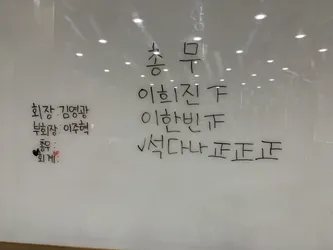 회장:김영광
부회장:이주혁
총무:
회계:
총 무
이희진 下
이한빈 正
✓석다나 正正正